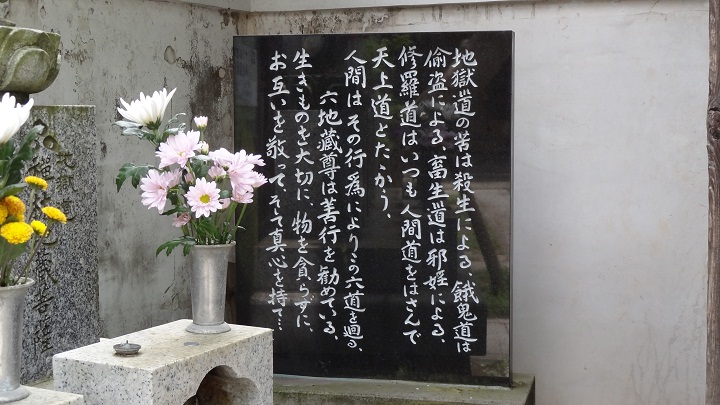 地獄道の苦は殺生による、餓鬼道は
偸盗による、畜生道は邪婬による、
修羅道はいつも人間道をはさんで
天上道とたゝかう、
人間はその行為によりこの六道を廻る、
六地蔵尊は善行を勧めている、
生きものを大切に、物を貪らずに、
お互いを敬って そして真心を持て…
菩薩